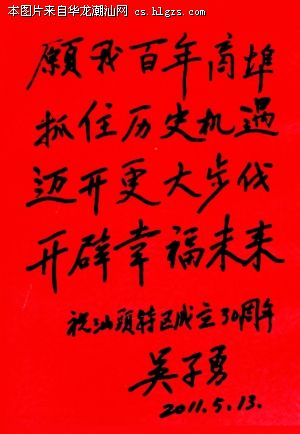 本图片来自华龙潮汕网 cs.hlgzs.com
願我百年商埠
抓住历史机遇
迈开更大步伐
开辟幸福未来
祝汕頭特区成立30周年
吴子勇
2011.5.13.